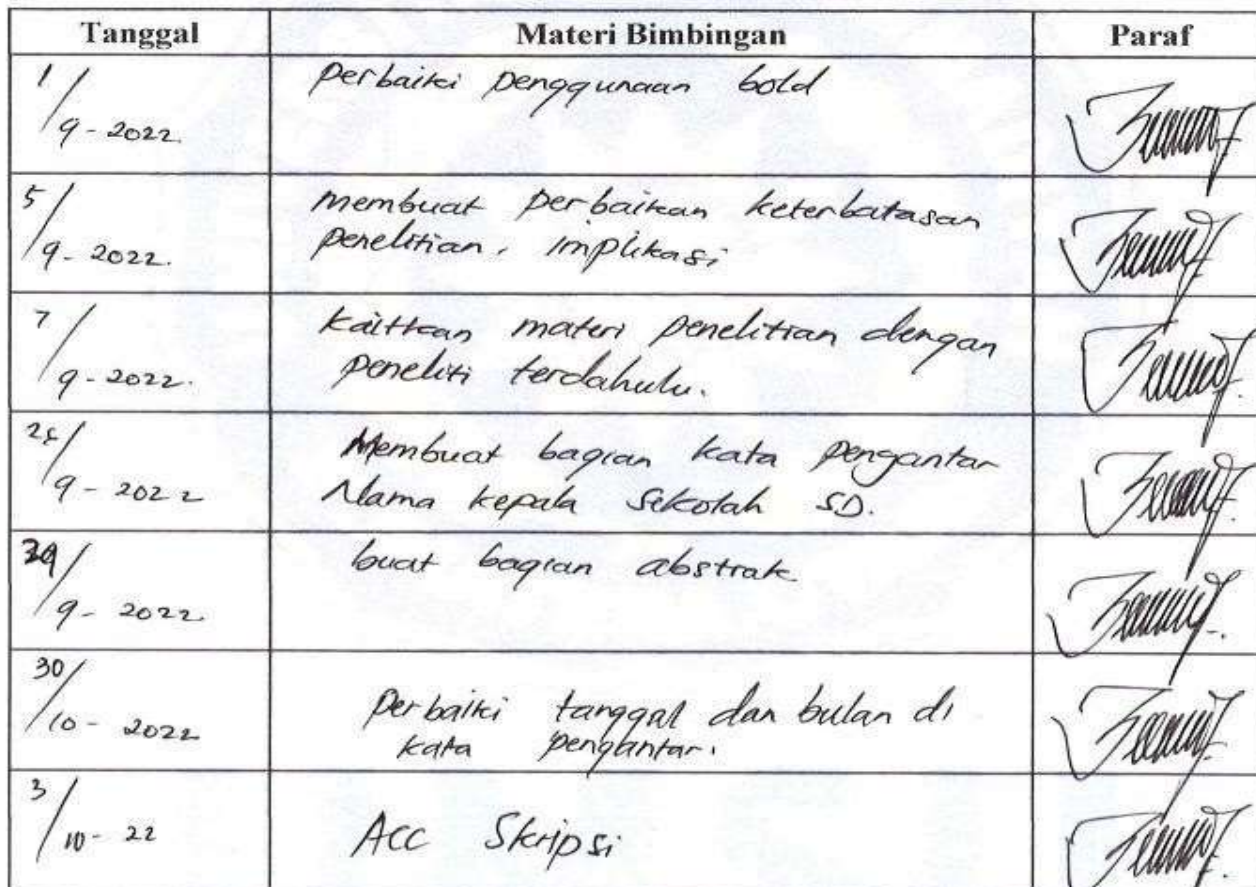 Tanggal Materi Bimbingan Paraf
1/9-2022. perbaiki penggunaan bold
5/9-2022. membuat perbaikan keterbatasan
penelitian, implikasi
7/9-2022. Kaitkan materi penelitian dengan
peneliti terdahulu.
/9-2022 Membuat bagian kata pengantar
Nama kepala Sekolah SD.
/9-2022. buat bagian abstrak
30/10-2022 perbaiki tanggal dan bulan di
kata pengantar.
3/10-22 Acc Skripsi